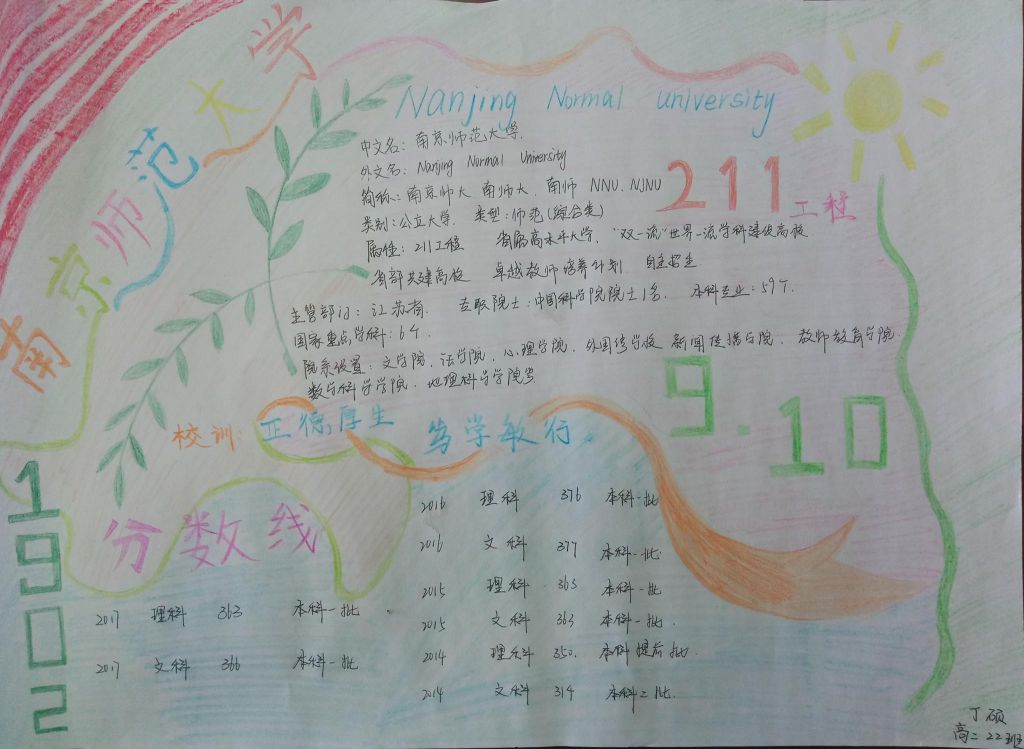 南京师范大学
Nanjing Normal university
中文名：南京师范大学.
外文名：Nanjing Normal University
简称：南京师大 南师大、南师 NNU、NJNU
211工程
类别：公立大学. 类型：师范(综合类)
属性：211工程 省属高水平大学、“双一流”世界一流学科建设高校
省部共建高校 卓越教师培养计划 自主招生
主管部门：江苏省. 互聘院士：中国科学院院士1名. 本科专业：59个.
国家重点学科：6个.
院系设置：文学院、法学院、心理学院、外国语学校 新闻传播学院、教师教育学院.
数学科学学院、地理科学学院等
9.10
校训：正德厚生 笃学敏行
1902
分数线
2017 理科 363 本科一批
2017 文科 366 本科一批
2016 理科 376 本科一批
2016 文科 377 本科一批
2015 理科 363 本科一批
2015 文科 363 本科一批.
2014 理科 350. 本科提前批.
2014 文科 314 本科二批.
丁硕
高二 22班